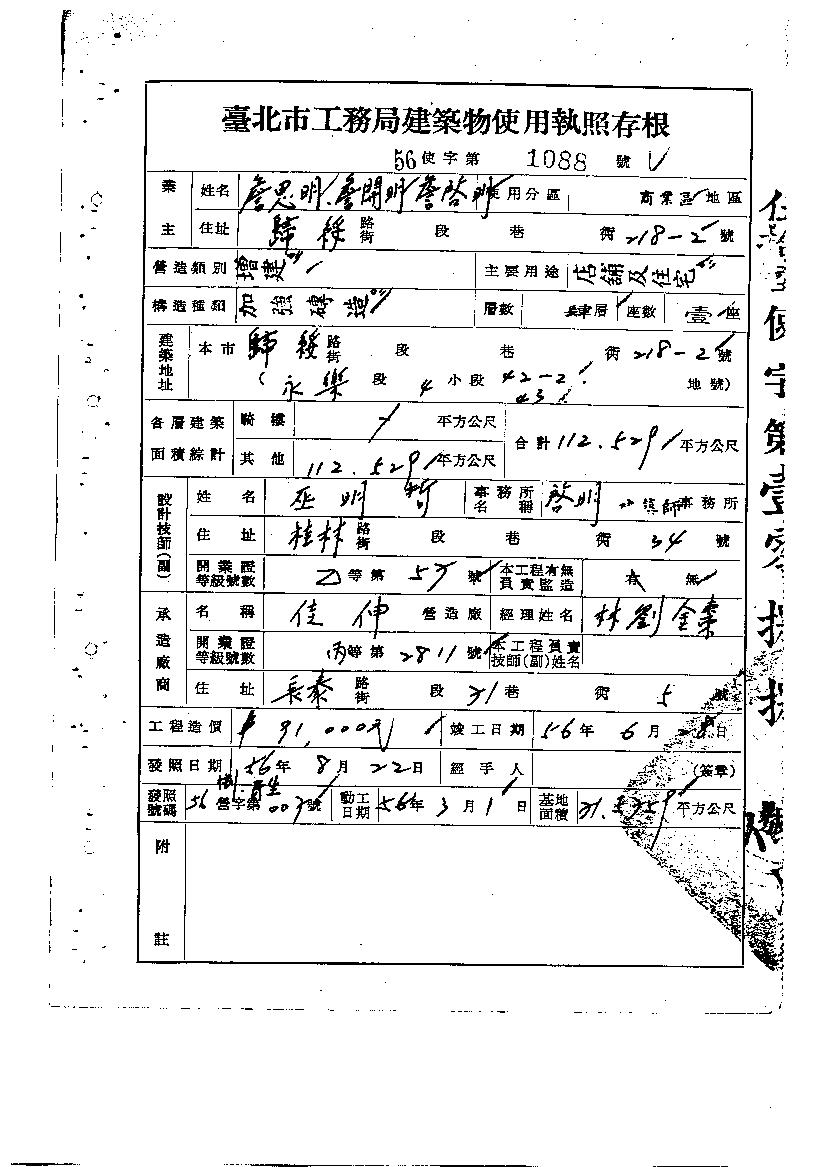 臺北市工務局建築物使用執照存根
56使字第 1088 號
業主 姓名 詹思明、詹開明 詹啓明 使用分區 商業區地區
住址 歸綏 路街 段 巷 衖 218-2 號
營造類別 增建 主要用途 店舖及住宅
構造種類 加強磚造 層數 肆層 座數 壹座
建築地址 本市 歸綏 路街 段 巷 衖 218-2 號
(永樂 段 4 小段 42-2 43 地號)
各層建築面積綜計 騎樓 平方公尺 合計 112.529 平方公尺
其他 112.529 平方公尺
設計技師(副) 姓名 巫明哲 事務所名稱 啓明 事務所
住址 桂林 路街 段 巷 衖 34 號
開業證等級號數 乙等第 57 號 本工程有無負責監造 有 無
承造廠商 名稱 佳伸 營造廠 經理姓名 林劉金棗
開業證等級號數 丙等第 2811 號 本工程負責技師(副)姓名
住址 長泰 路街 段 31 巷 衖 5 號
工程造價 91,000元 竣工日期 56年 6月 28日
發照日期 56年 8月 22日 經手人 (簽章)
發照號碼 56 營字第 003 號 動工日期 56年 3月 1日 基地面積 平方公尺
附註
使字第壹零捌捌